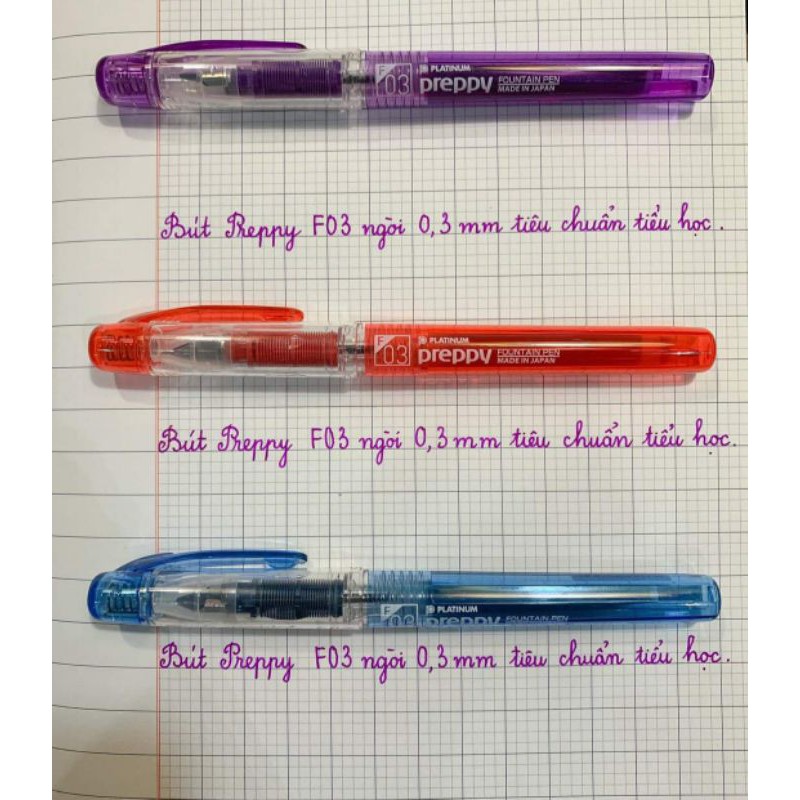 F 03 PLATINUM preppy FOUNTAIN PEN
MADE IN JAPAN
Bút Preppy F03 ngòi 0,3 mm tiêu chuẩn tiểu học.
F 03 PLATINUM preppy FOUNTAIN PEN
MADE IN JAPAN
Bút Preppy F03 ngòi 0,3 mm tiêu chuẩn tiểu học.
F 03 PLATINUM preppy FOUNTAIN PEN
Bút Preppy F03 ngòi 0,3 mm tiêu chuẩn tiểu học.